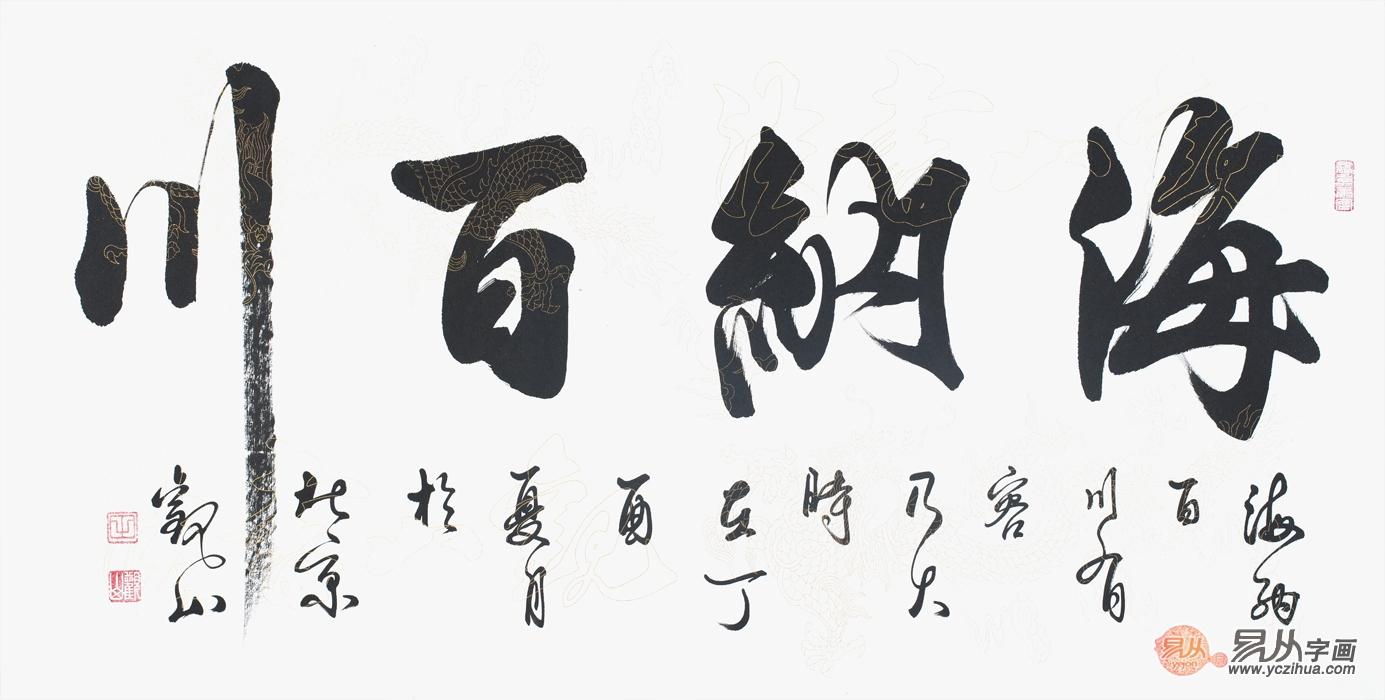 海納百川
海納
百
川有
容
乃大
時
在丁
酉
夏月
於
北京
觀山
山
觀山
易从
yicong
易从字画
www.yczihua.com